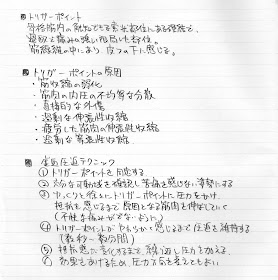 トリガーポイント
骨格筋内の触知できる索状硬結にある過敏で、
限局した痛みの強い限局した部位。
筋線維の中にあり、皮フの下に感じる。
トリガーポイントの原因
・筋収縮の弱化
・筋肉の内圧の不均等な分散
・直接的な外傷
・過剰な伸張性収縮
・疲労した筋肉の伸張性収縮
・過剰な求心性収縮
虚血圧迫テクニック
① トリガーポイントを同定する
② 十分な可動域を確認し苦痛を感じない姿勢にする
③ ゆっくりと徐々にトリガーポイントに圧力をかけ
抵抗を感じるまで原因となる筋肉を伸ばしていく
(不快な痛みがでないように)
④ トリガーポイントがやわらかく感じるまで圧迫を維持する
(数秒〜数分間)
⑤ 抵抗感に変化するまで繰り返し圧力を加える
⑥ 効果をあげるため圧力方向を変えてもよい